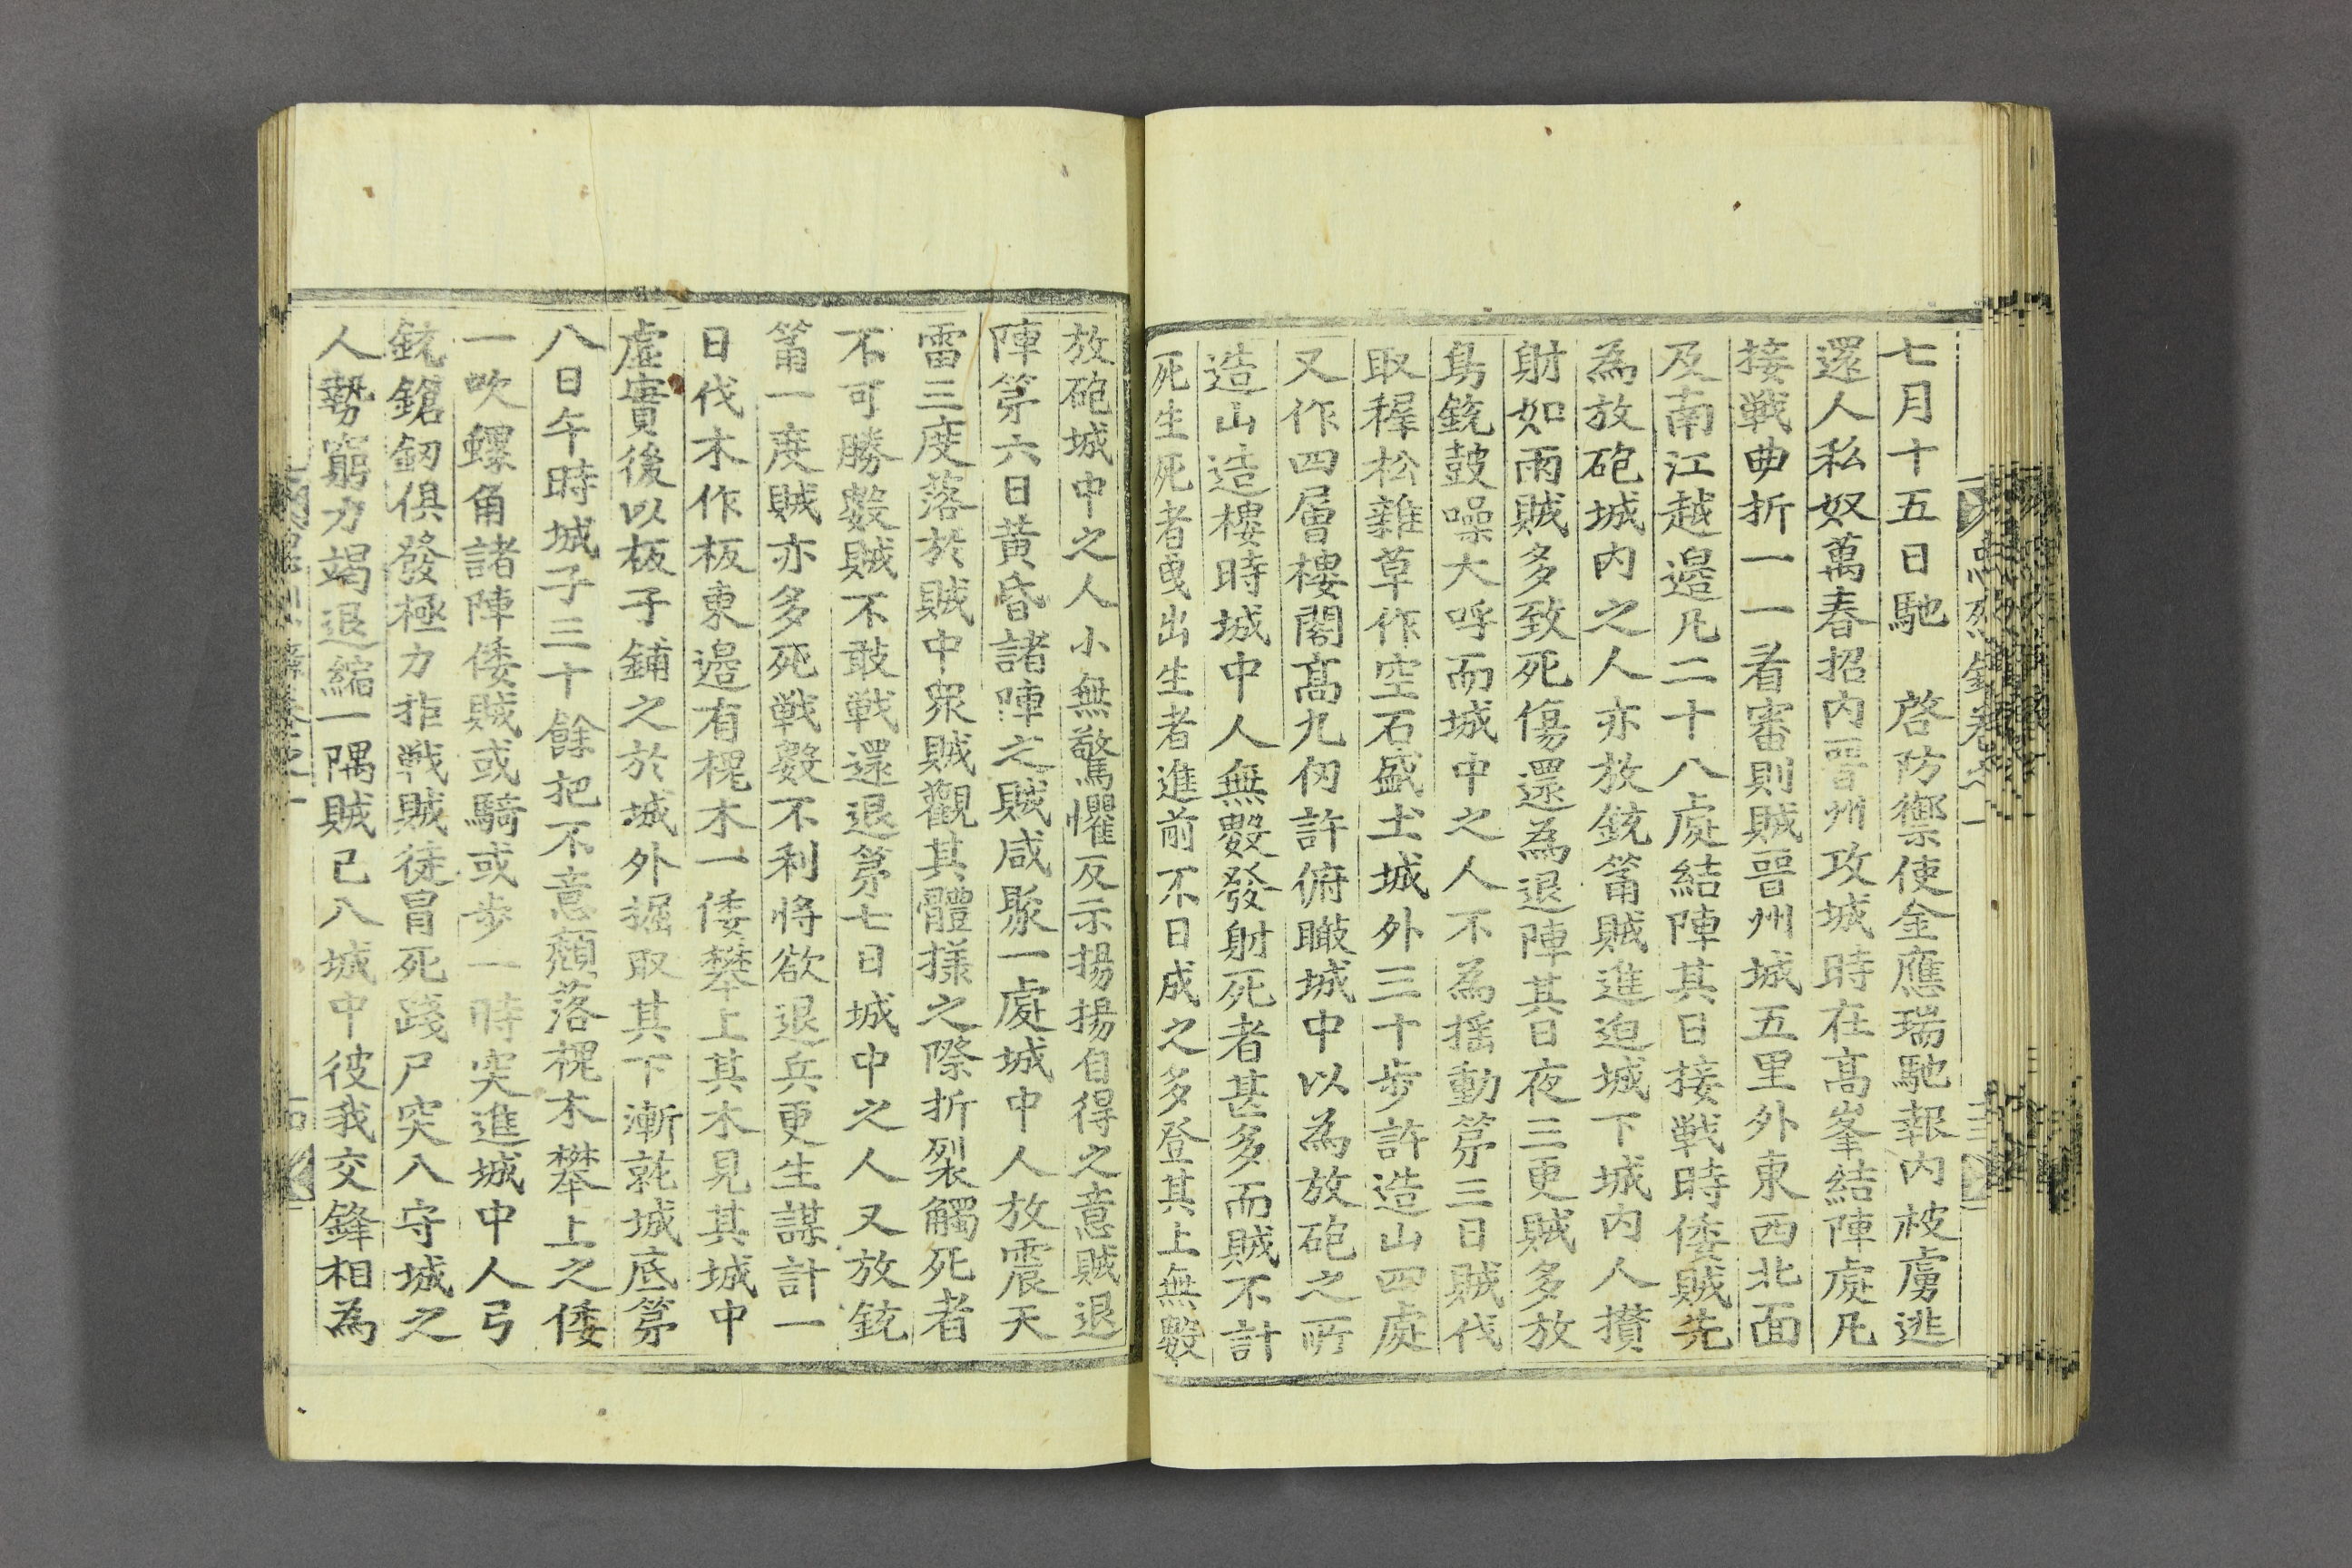 七月十五日馳　啓防禦使金應瑞馳報內被虜逃
還人私奴萬春招內晋州攻城時在高峯結陣處凡
接戰曲折一一看審則賊晋州城五里外東西北面
及南江越邉凡二十八處結陣其日接戰時倭賊先
為放砲城內之人亦放銃筩賊進迫城下城內人攅
射如雨賊多致死傷還為退陣其日夜三更賊多放
鳥銃鼓噪大呼而城中之人不為搖動第三日賊伐
取稺松雜草作空石盛土城外三十步許造山四處
又作四層樓閣高九仞許俯瞰城中以為放砲之所
造山造樓時城中人無數發射死者甚多而賊不計
死生死者曵出生者進前不日成之多登其上無數
放砲城中之人小無驚懼反示揚揚自得之意賊退
陣第六日黃昏諸陣之賊咸聚一處城中人放震天
雷三度落於賊中衆賊觀其體㨾之際折裂觸死者
不可勝數賊不敢戰還退第七日城中之人又放銃
筩一度賊亦多死戰數不利將欲退兵更生謀計一
日伐木作板東邉有槐木一倭攀上其木見其城中
虛實後以板子鋪之於城外掘取其下漸就城底第
八日午時城子三十餘把不意頹落槐木攀上之倭
一吹螺角諸陣倭賊或騎或步一時突進城中人弓
銃鎗釼俱發極力拒戰賊徒冒死踐尸突入守城之
人勢窮力竭退縮一隅賊已入城中彼我交鋒相為
忠烈錄卷之一
十三